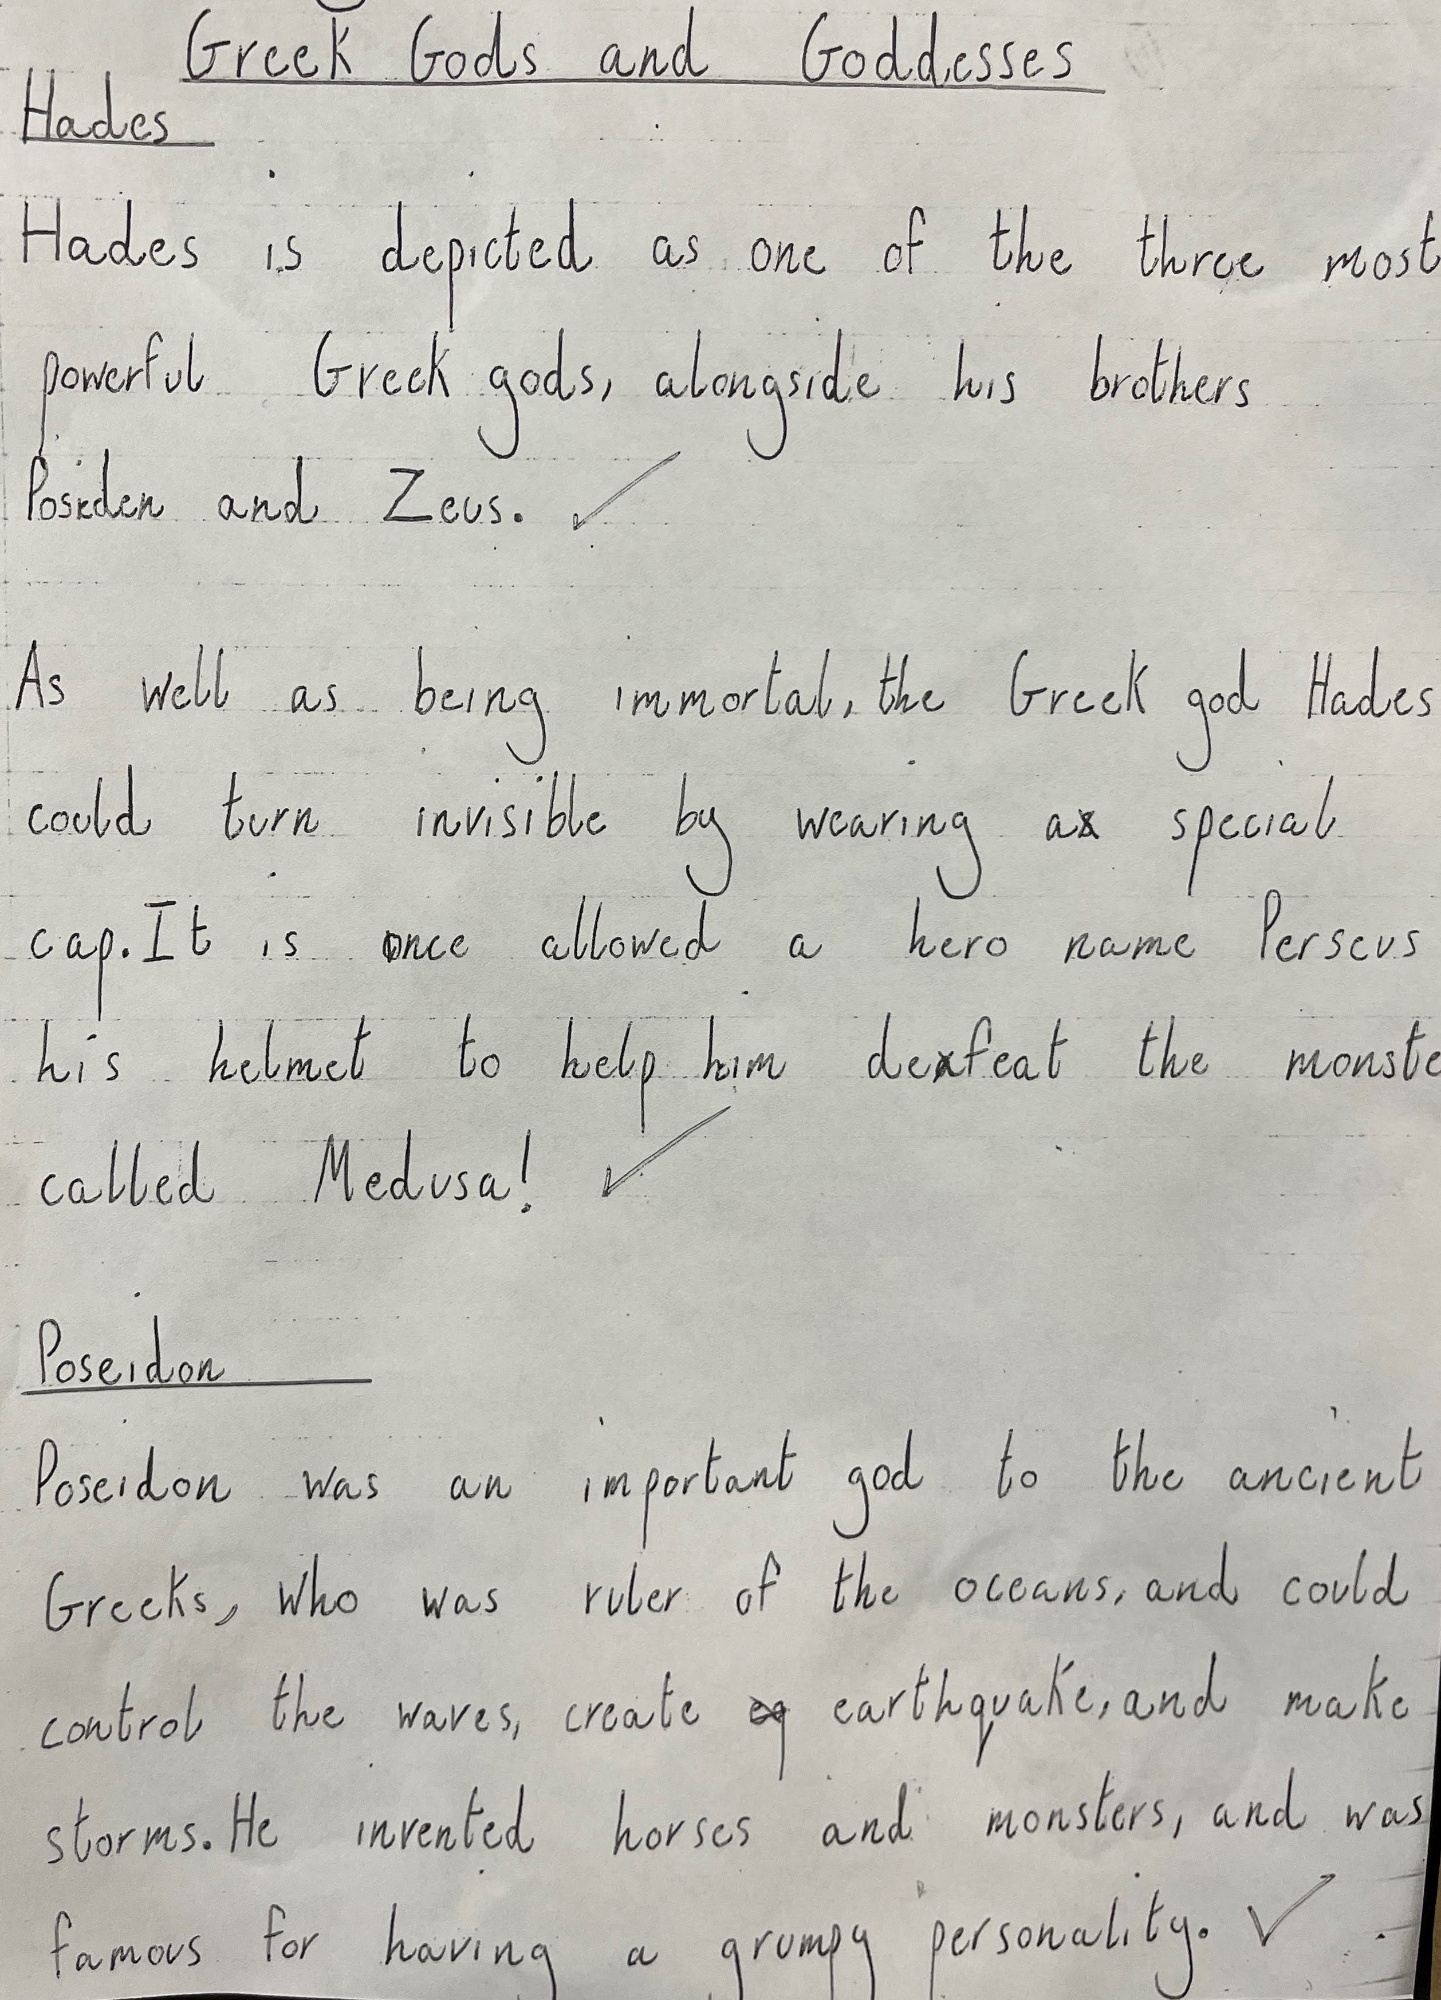 Greek Gods and Goddesses
Hades
Hades is depicted as one of the three most
powerful Greek gods, alongside his brothers
Poseden and Zeus. ✓
As well as being immortal, the Greek god Hades
could turn invisible by wearing a special
cap. It is once allowed a hero name Perseus
his helmet to help him defeat the monste
called Medusa! ✓
Poseidon
Poseidon was an important god to the ancient
Greeks, who was ruler of the oceans, and could
control the waves, create earthquake, and make
storms. He invented horses and monsters, and was
famous for having a grumpy personality. ✓